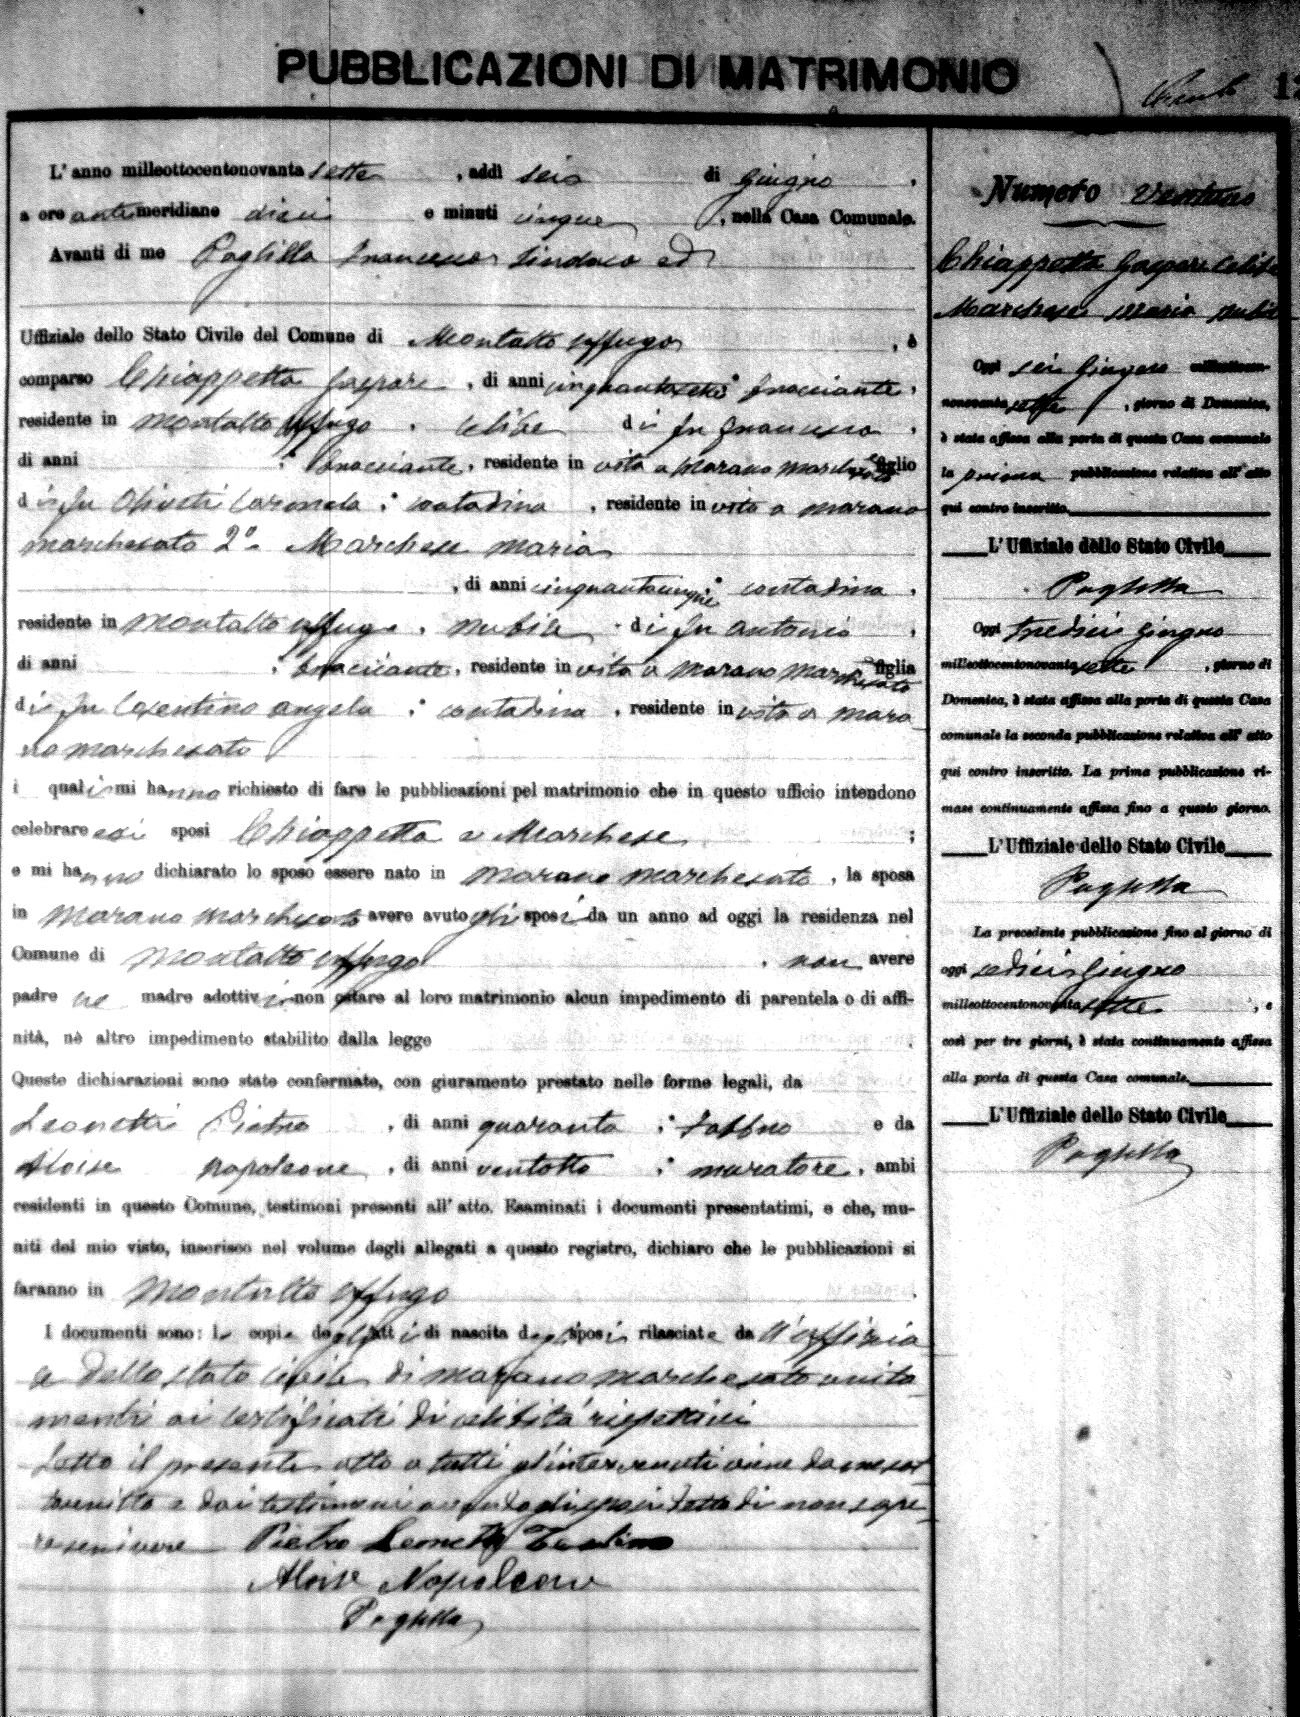 PUBBLICAZIONI DI MATRIMONIO
L'anno milleottocentonovanta sette, addì seis di Giugno,
a ore antimeridiane dieci e minuti cinque, nella Casa Comunale.
Avanti di me Francesco Sindaco ed
Uffiziale dello Stato Civile del Comune di Montalto Uffugo, è
comparso Chiappetta Gaspare, di anni : bracciante,
residente in Montalto Uffugo, celibe di fu Francesco,
di anni : bracciante, residente in vita a Marano Marchesato figlio
di fu : contadina, residente in vita a Marano
Marchesato 2° Marchese Maria
, di anni cinquantacinque : contadina,
residente in Montalto Uffugo, nubile di fu Antonio,
di anni : bracciante, residente in vita a Marano Marchesato figlia
di fu Cosentino Angela : contadina, residente in vita a Mara
no Marchesato
i quali mi hanno richiesto di fare le pubblicazioni pel matrimonio che in questo ufficio intendono
celebrare essi sposi Chiappetta e Marchese ;
e mi hanno dichiarato lo sposo essere nato in Marano Marchesato, la sposa
in Marano Marchesato avere avuto gli sposi da un anno ad oggi la residenza nel
Comune di Montalto Uffugo, non avere
padre ne madre adottivi non ostare al loro matrimonio alcun impedimento di parentela o di affi-
nità, nè altro impedimento stabilito dalla legge.
Queste dichiarazioni sono state confermate, con giuramento prestato nelle forme legali, da
Leonetti Pietro, di anni quaranta : fabbro e da
Aloise Napoleone, di anni ventotto : muratore, ambi
residenti in questo Comune, testimoni presenti all'atto. Esaminati i documenti presentatimi, e che, mu-
niti del mio visto, inserisco nel volume degli allegati a questo registro, dichiaro che le pubblicazioni si
faranno in Montalto Uffugo.
I documenti sono: le copie degli atti di nascita degli sposi rilasciate da ll'uffizia
e dello stato civile di Marano Marchesato unita
menti ai certificati di celibità rispettivi
Letto il presente atto a tutti gl'intervenuti viene da me sot
toscritto e dai testimoni avendo gli sposi detto di non sape
re scrivere Pietro Leonetti
Aloise Napoleone
Numero ventuno
Chiappetta Gaspare celibe
Marchese Maria nubile
Oggi sei Giugno milleottocen-
tonovanta sette, giorno di Domenica,
è stata affissa alla porta di questa Casa comunale
la prima pubblicazione relativa all'atto
qui contro inscritto.
L'Uffiziale dello Stato Civile
Oggi tredici Giugno
milleottocentonovanta sette, giorno di
Domenica, è stata affissa alla porta di questa Casa
comunale la seconda pubblicazione relativa all'atto
qui contro inscritto. La prima pubblicazione ri-
mase continuamente affissa fino a questo giorno.
L'Uffiziale dello Stato Civile
La precedente pubblicazione fino al giorno di
oggi sedici Giugno
milleottocentonovanta sette, e
così per tre giorni, è stata continuamente affissa
alla porta di questa Casa comunale.
L'Uffiziale dello Stato Civile